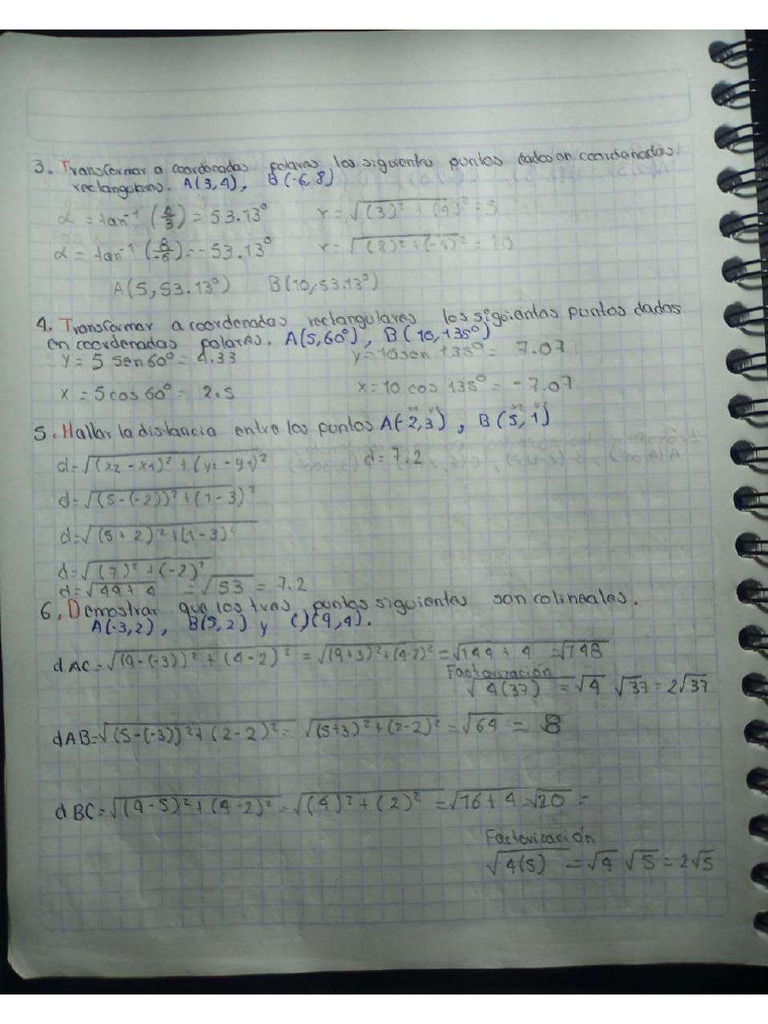 3. Transformar a coordenadas polares los siguientes puntos dados en coordenadas
rectangulares. A(3,4), B(-6,8)
α = tan⁻¹ (4/3) = 53.13° r = √(3)² + (4)² = 5
α = tan⁻¹ (8/-6) = -53.13° r = √(8)² + (-6)² = 10
A(5,53.13°) B(10,-53.13°)
4. Transformar a coordenadas rectangulares los siguientes puntos dados
en coordenadas polares. A(5,60°), B(10,135°)
y = 5 sen 60° = 4.33 y = 10 sen 135° = 7.07
x = 5 cos 60° = 2.5 x = 10 cos 135° = -7.07
5. Hallar la distancia entre los puntos A(-2,3), B(5,1)
d = √(x2 - x1)² + (y2 - y1)² d = 7.2
d = √(5-(-2))² + (1-3)²
d = √(5+2)² + (1-3)²
d = √(7)² + (-2)²
d = √49 + 4 = √53 = 7.2
6. Demostrar que los tres puntos siguientes son colineales.
A(-3,2), B(5,2) y C)(9,4).
dAC = √(9-(-3))² + (4-2)² = √(9+3)² + (4-2)² = √144 + 4 = √148
Factorización
√4(37) = √4 √37 = 2√37
dAB = √(5-(-3))² + (2-2)² = √(5+3)² + (2-2)² = √64 = 8
dBC = √(9-5)² + (4-2)² = √(4)² + (2)² = √16 + 4 = √20 =
Factorización
√4(5) = √4 √5 = 2√5